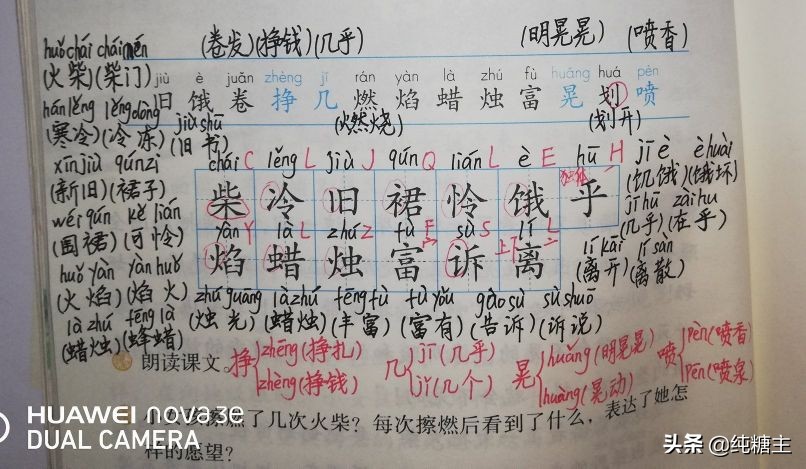 (卷发)(挣钱)(几乎) (明晃晃) (喷香)
jiù è juǎn zhèng jī rán yàn là zhú fù huáng huá pèn
旧 饿 卷 挣 几 燃 焰 蜡 烛 富 晃 划 喷
(燃烧) (划开)
huǒ chái chái mén
(火柴)(柴门)
hán lěng lěng dòng
(寒冷)(冷冻)
jiù shū
(旧书)
xīn jiù qún zi
(新旧)(裙子)
wéi qún kě lián
(围裙)(可怜)
huǒ yàn yàn huǒ
(火焰)(焰火)
là zhú fēng là
(蜡烛)(蜂蜡)
chái C lěng L jiù J qún Q lián L è E hū H
独体
柴 冷 旧 裙 怜 饿 乎
yàn Y là L zhú Z fù F sù S lí L
宀 上下 亠
焰 蜡 烛 富 诉 离
jī è è huài
(饥饿)(饿坏)
jī hū zài hu
(几乎)(在乎)
lí kāi lí sàn
(离开)(离散)
zhú guāng là zhú fēng fù fù yǒu gào sù sù shuō
(烛光)(蜡烛)(丰富)(富有)(告诉)(诉说)
朗读课文。
挣 zhēng(挣扎) zhèng(挣钱)
几 jī(几乎) jǐ(几个)
晃 huǎng(明晃晃) huàng(晃动)
喷 pèn(喷香) pēn(喷泉)
小女孩擦燃了几次火柴？每次擦燃后看到了什么，表达了她怎
样的愿望？
HUAWEI nova 3e
DUAL CAMERA
头条 @纯糖主